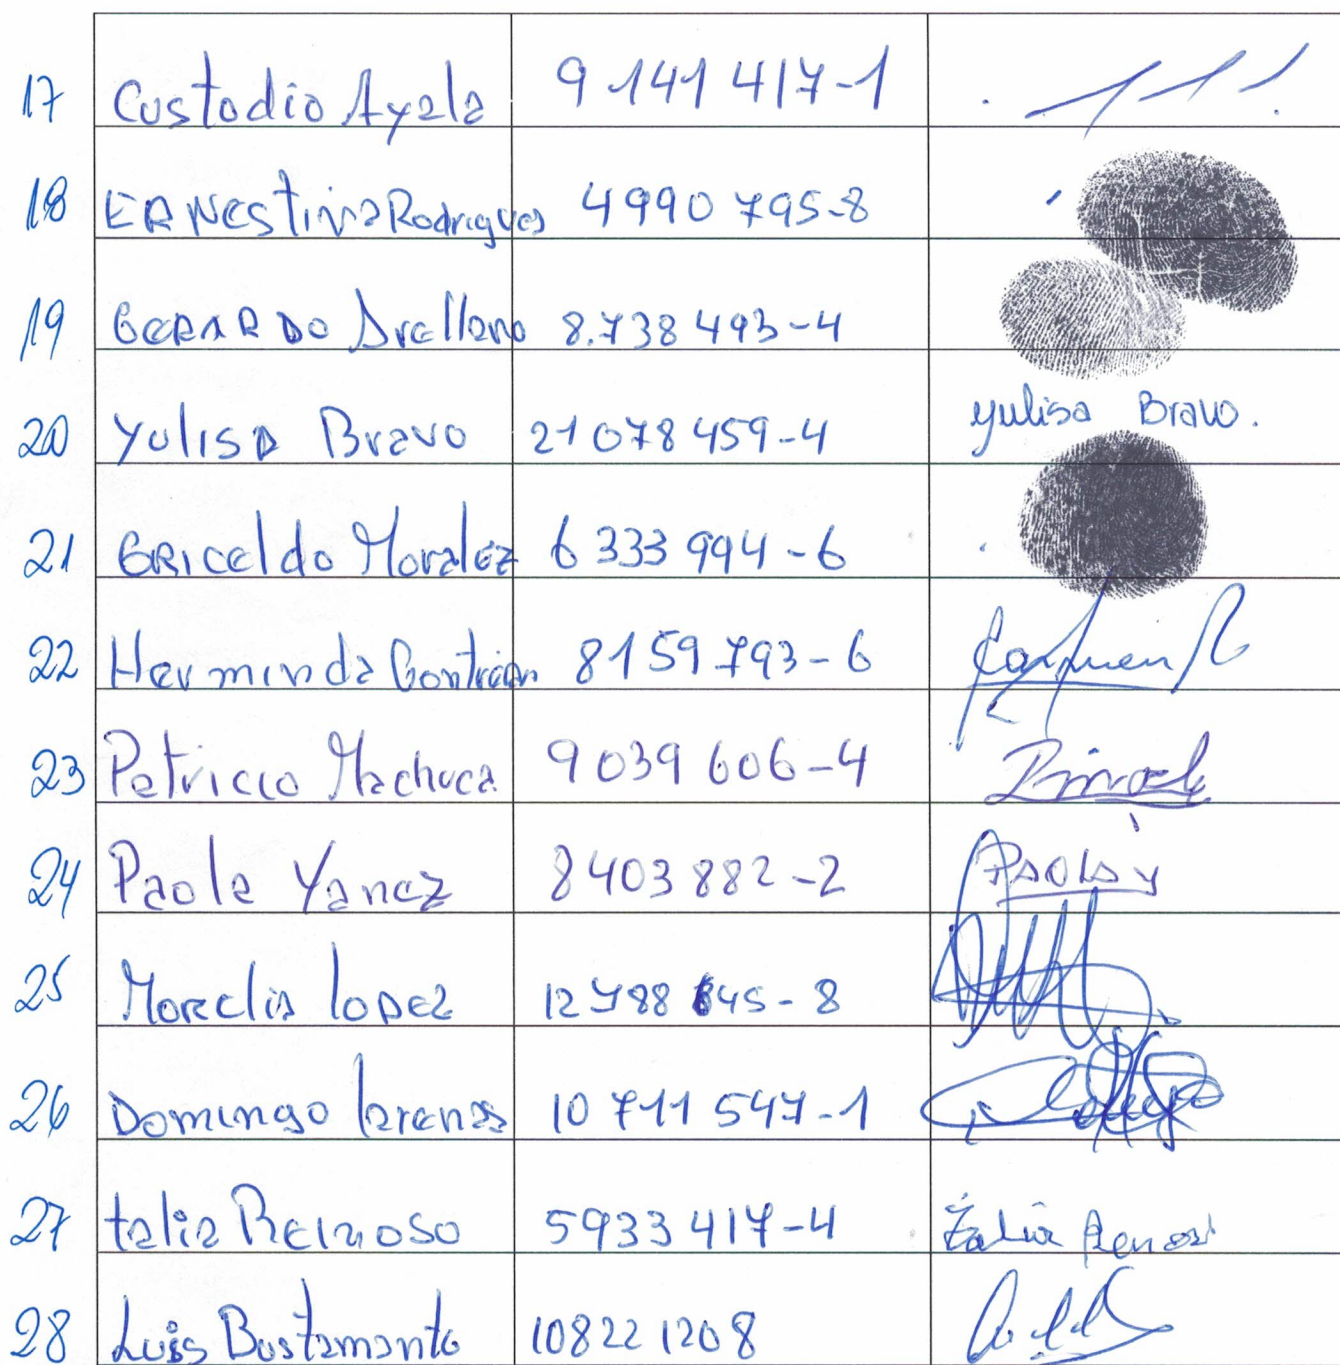 17 Custodio Ayala 9 141 417-1
18 ERNestina Rodrigues 4990 795-8
19 GERARDO Arellano 8.738 493-4
20 Yulisa Bravo 21 078 459-4 yulisa Bravo.
21 GRIceldo Moralez 6 333 994-6
22 Herminda 8159 793-6 Carmen
23 Patricio Machuca 9039 606-4
24 Paola Yanez 8403 882-2 PAOLA Y
25 Morelia lopez 12 788 645-8
26 Domingo larenas 10 711 547-1
27 talia Reinoso 5933 417-4 talia
28 Luis Bustamante 10822 1208